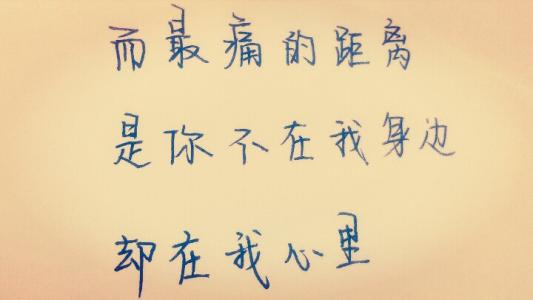 而最痛的距离
是你不在我身边
却在我心里